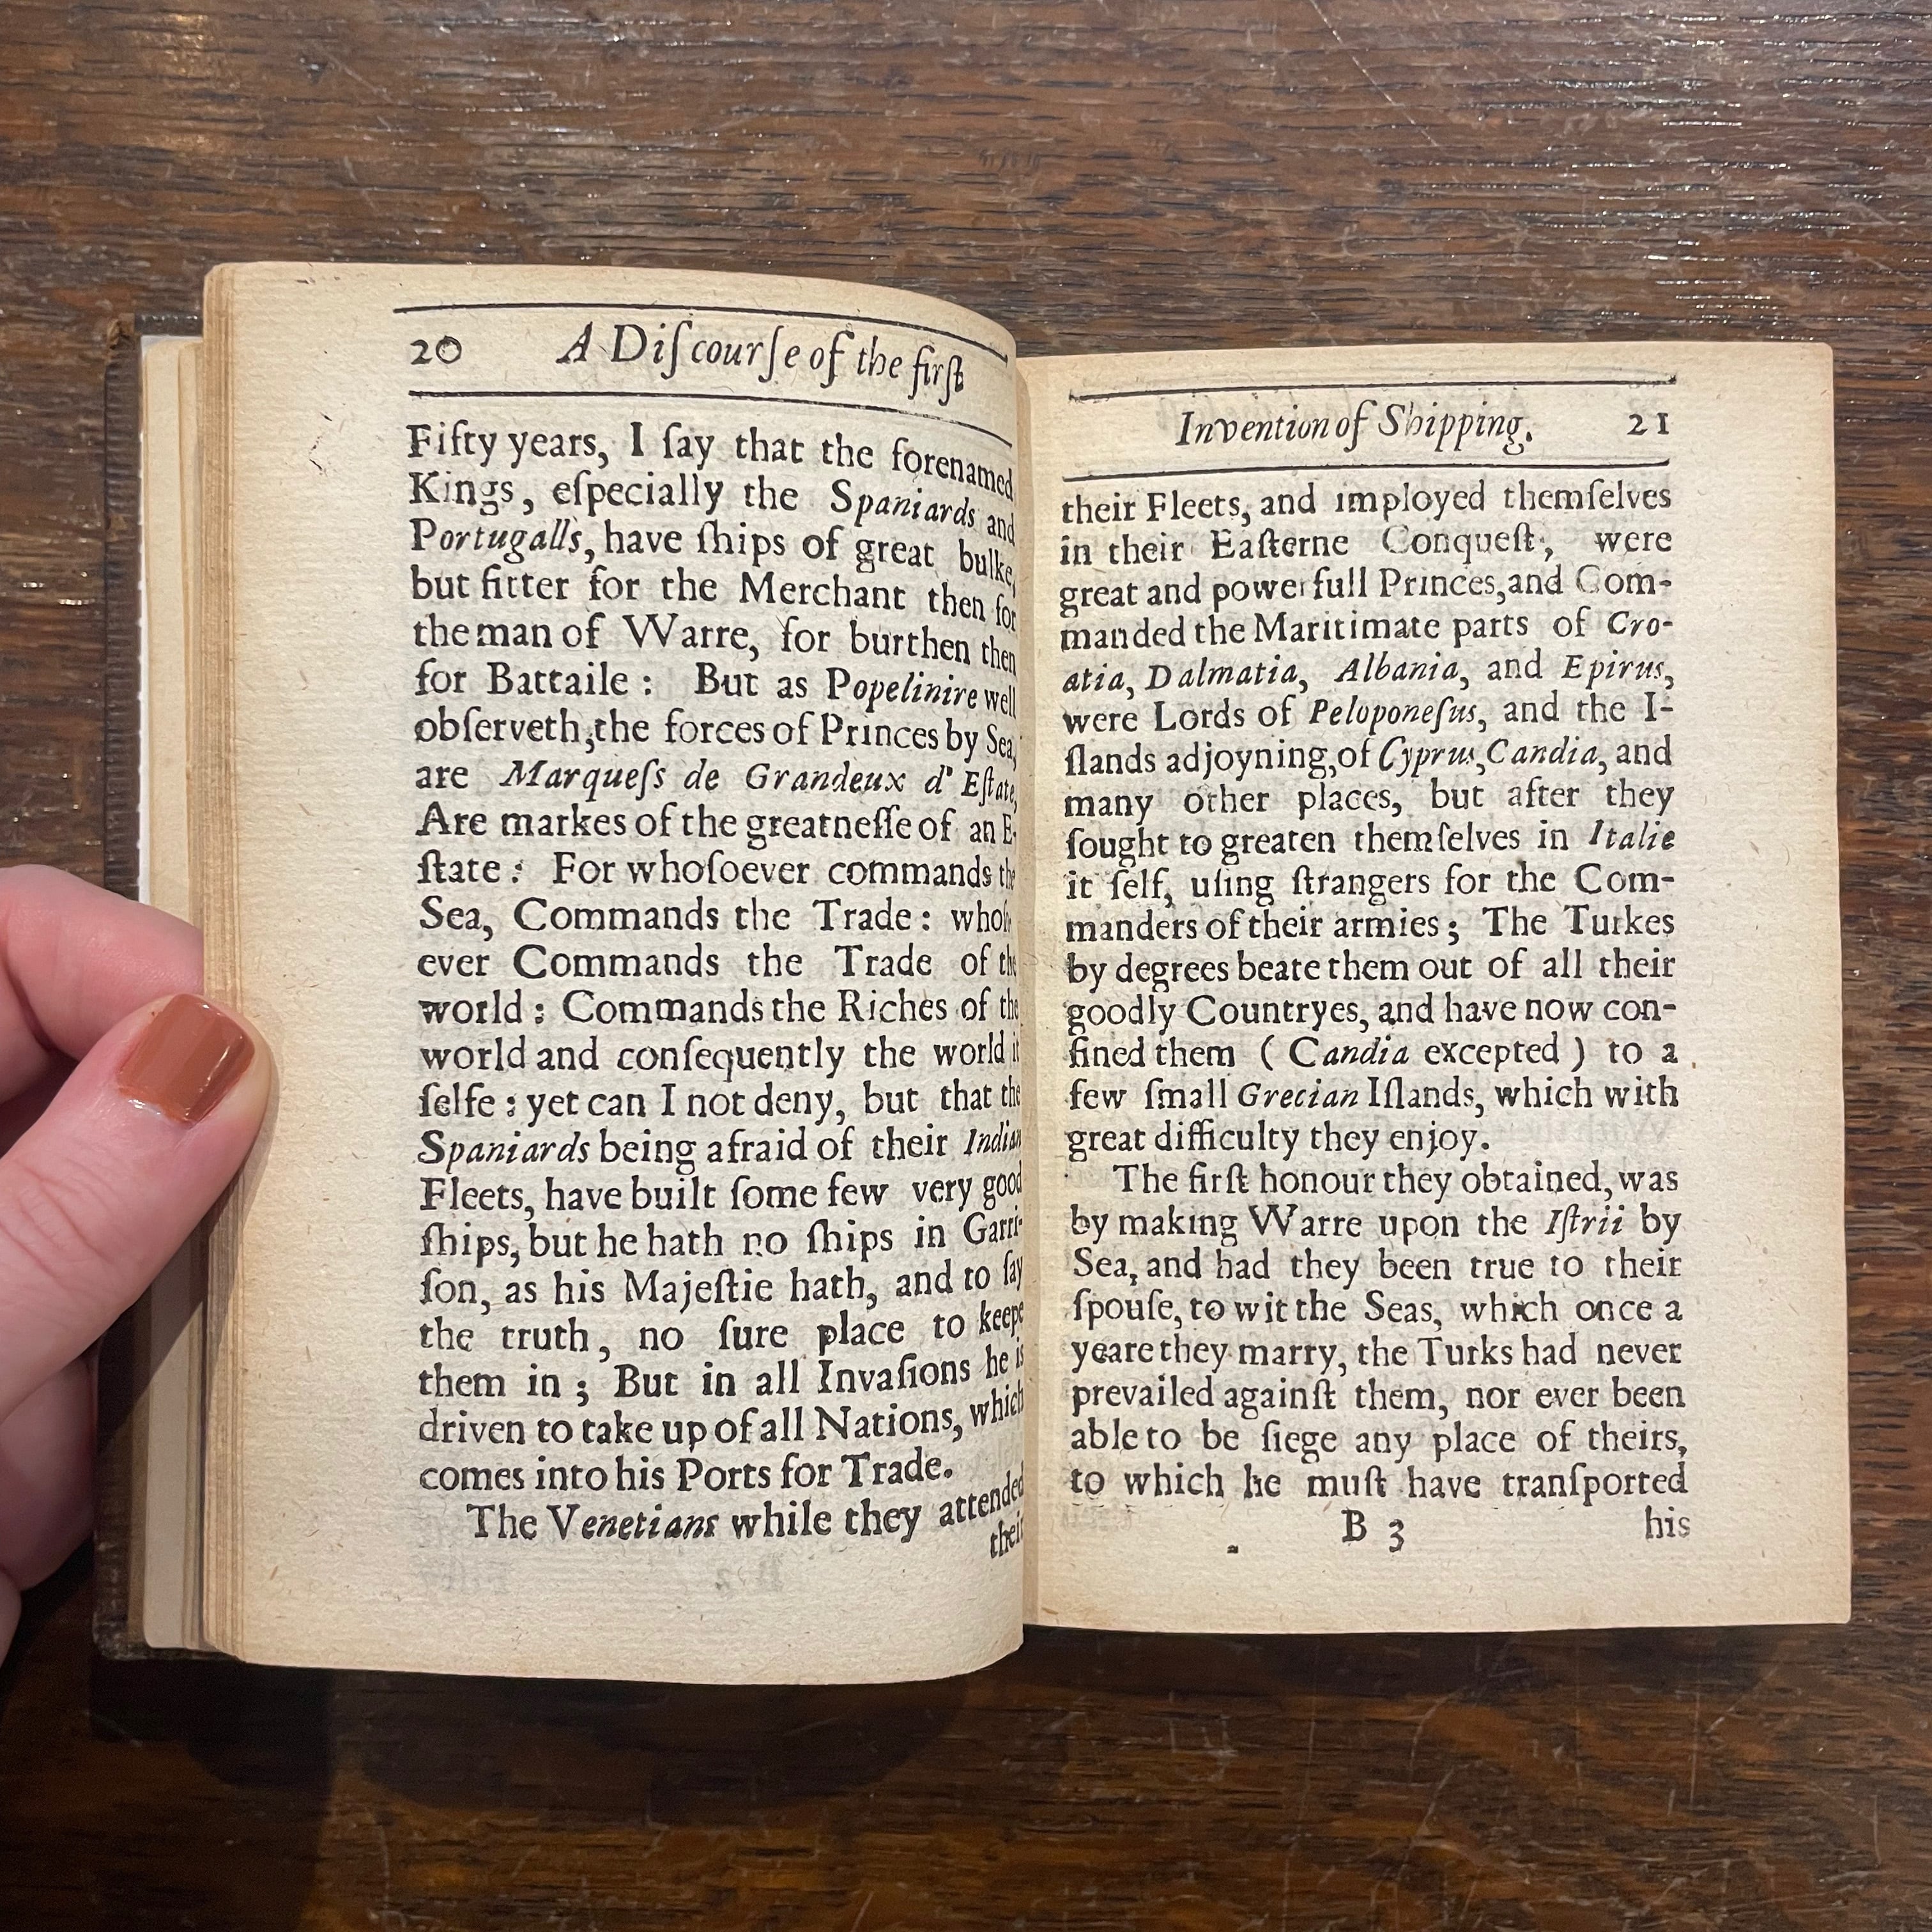 20 A Diſcourſe of the firſt
Fifty years, I ſay that the forenamed
Kings, eſpecially the Spaniards and
Portugalls, have ſhips of great bulke,
but fitter for the Merchant then for
the man of Warre, for burthen then
for Battaile: But as Popelinire well
obſerveth, the forces of Princes by Sea,
are Marqueſs de Grandeux d' Eſtate,
Are markes of the greatneſſe of an E-
ſtate: For whoſoever commands the
Sea, Commands the Trade: whoſ
ever Commands the Trade of the
world: Commands the Riches of the
world and conſequently the world it
ſelfe: yet can I not deny, but that the
Spaniards being afraid of their Indian
Fleets, have built ſome few very good
ſhips, but he hath no ſhips in Garri-
ſon, as his Majeſtie hath, and to ſay
the truth, no ſure place to keepe
them in; But in all Invaſions he is
driven to take up of all Nations, which
comes into his Ports for Trade.
The Venetians while they attended
their
Invention of Shipping. 21
their Fleets, and imployed themſelves
in their Eaſterne Conqueſt, were
great and powerfull Princes, and Com-
manded the Maritimate parts of Cro-
atia, Dalmatia, Albania, and Epirus,
were Lords of Peloponeſus, and the I-
ſlands adjoyning, of Cyprus, Candia, and
many other places, but after they
ſought to greaten themſelves in Italie
it ſelf, uſing ſtrangers for the Com-
manders of their armies; The Turkes
by degrees beate them out of all their
goodly Countryes, and have now con-
fined them (Candia excepted) to a
few ſmall Grecian Iſlands, which with
great difficulty they enjoy.
The firſt honour they obtained, was
by making Warre upon the Iſtrii by
Sea, and had they been true to their
ſpouſe, to wit the Seas, which once a
yeare they marry, the Turks had never
prevailed againſt them, nor ever been
able to be ſiege any place of theirs,
to which he muſt have tranſported
B 3 his